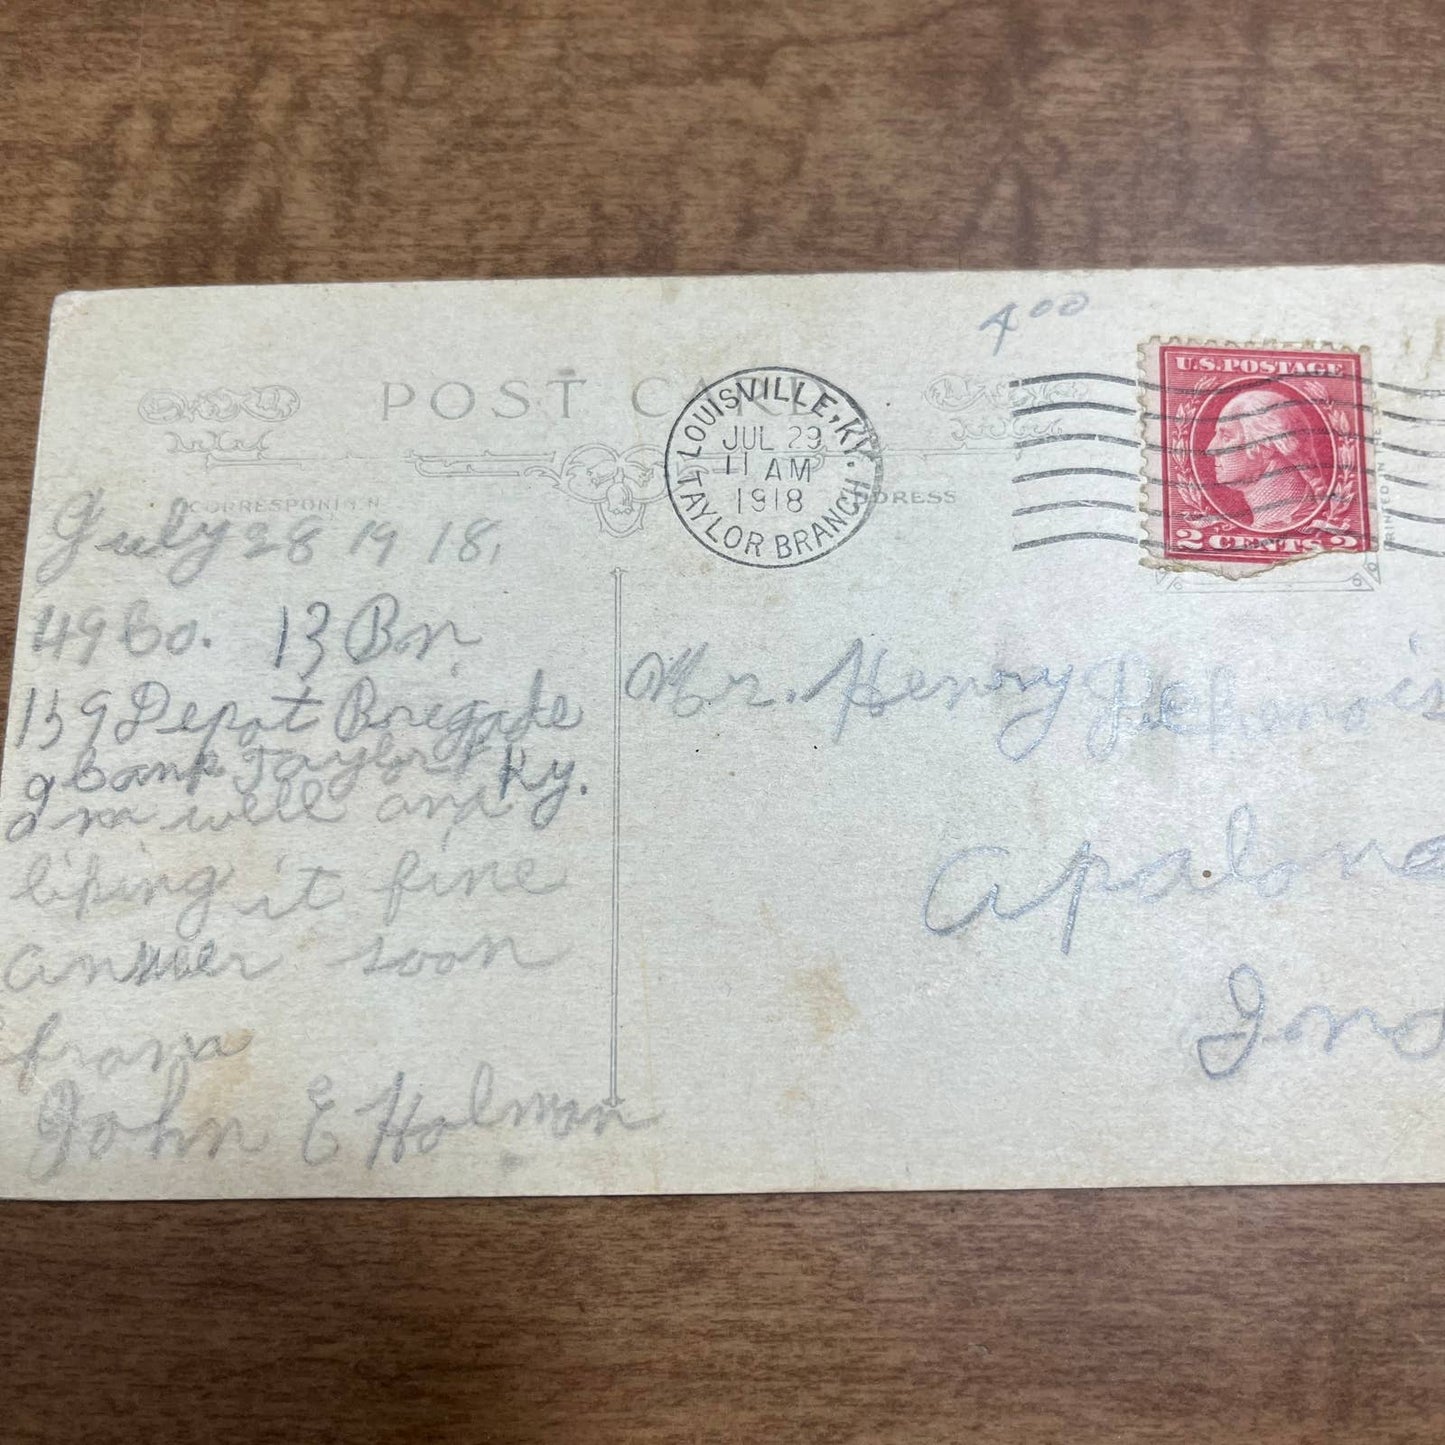 4 00
POST CARD
U.S. POSTAGE
2 CENTS 2
LOUISVILLE, KY.
JUL 29
11 AM
1918
TAYLOR BRANCH
CORRESPON
ADDRESS
PRINTED IN
July 28 19 18,
49 Co. 13 Bn.
159 Depot Brigade
Camp Taylor Ky.
I m well and
liking it fine
answer soon
from
John E Holman
Mr. Henry
Apalona